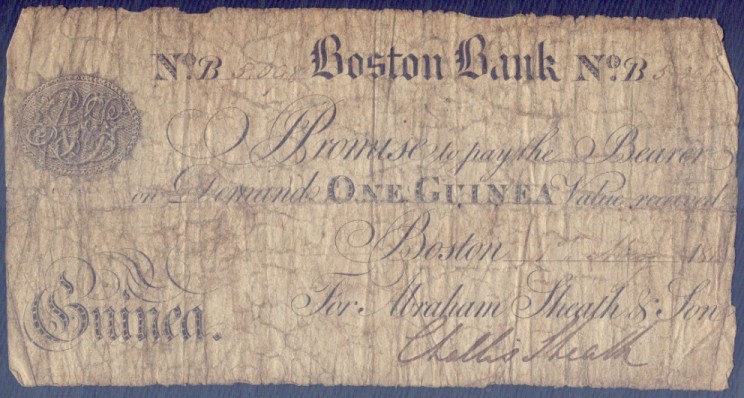 No. B Boston Bank No. B
I Promise to pay the Bearer
on Demand ONE GUINEA Value received
Boston
Guinea. For Abraham Sheath & Son
Sheath